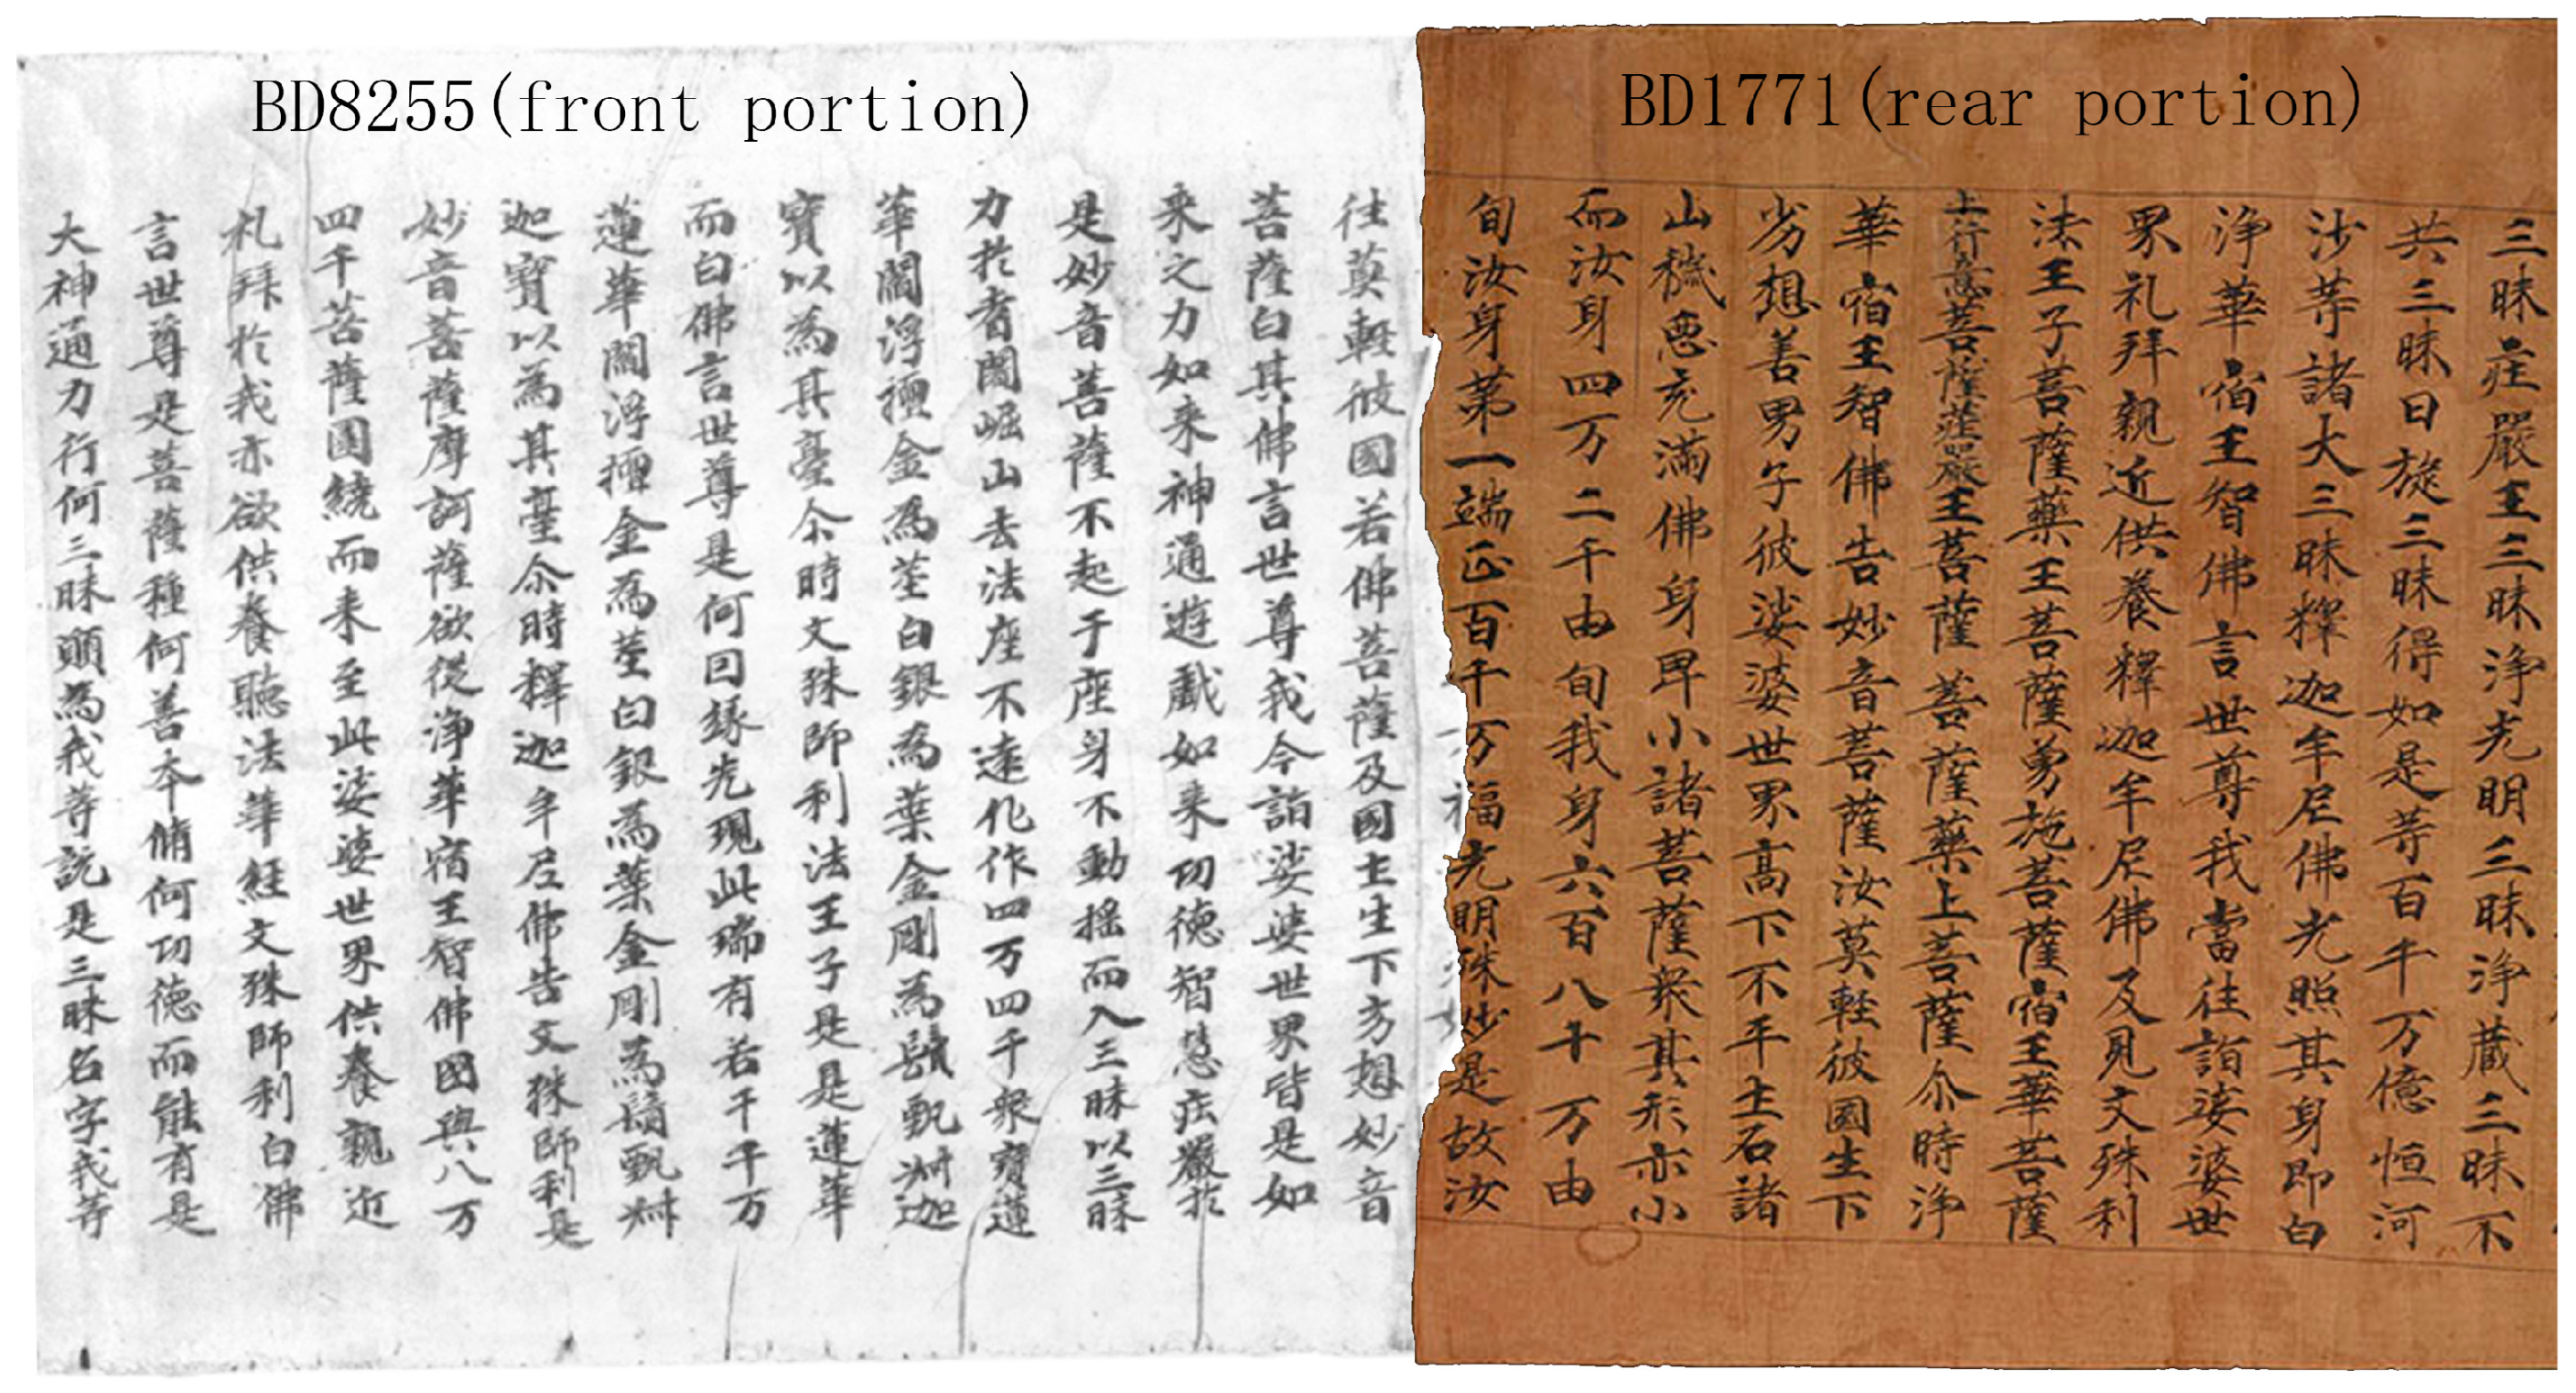 BD8255(front portion)
BD1771(rear portion)
三昧莊嚴王三昧淨光明三昧淨藏三昧不
共三昧日旋三昧得如是等百千万億恒河
沙等諸大三昧釋迦牟尼佛光照其身即白
淨華宿王智佛言世尊我當往詣娑婆世
界礼拜親近供養釋迦牟尼佛及見文殊利
法王子菩薩藥王菩薩勇施菩薩宿王華菩薩
上行意菩薩莊嚴王菩薩菩薩藥上菩薩尒時淨
華宿王智佛告妙音菩薩汝莫軽彼國生下
劣想善男子彼娑婆世界高下不平土石諸
山穢惡充滿佛身卑小諸菩薩衆其形亦小
而汝身四万二千由旬我身六百八十万由
旬汝身第一端正百千万福光明殊妙是故汝
往莫軽彼國若佛菩薩及國土生下方想妙音
菩薩白其佛言世尊我今詣娑婆世界皆是如
来之力如来神通遊戲如来功德智慧莊嚴於
是妙音菩薩不起于座身不動揺而入三昧以三昧
力於耆闍崛山去法座不遠化作四万四千衆寶蓮
華閻浮檀金為莖白銀為葉金剛為鬚甄叔迦
寶以為其臺尒時文殊師利法王子是是蓮華
而白佛言世尊是何因緣先現此瑞有若干千万
蓮華閻浮檀金為莖白銀為葉金剛為鬚甄叔
迦寶以為其臺尒時釋迦牟尼佛告文殊師利是
妙音菩薩摩訶薩欲從淨華宿王智佛國與八万
四千菩薩圍繞而来至此娑婆世界供養親近
礼拜於我亦欲供養聽法華經文殊師利白佛
言世尊是菩薩種何善本脩何功德而能有是
大神通力行何三昧願為我等說是三昧名字我等